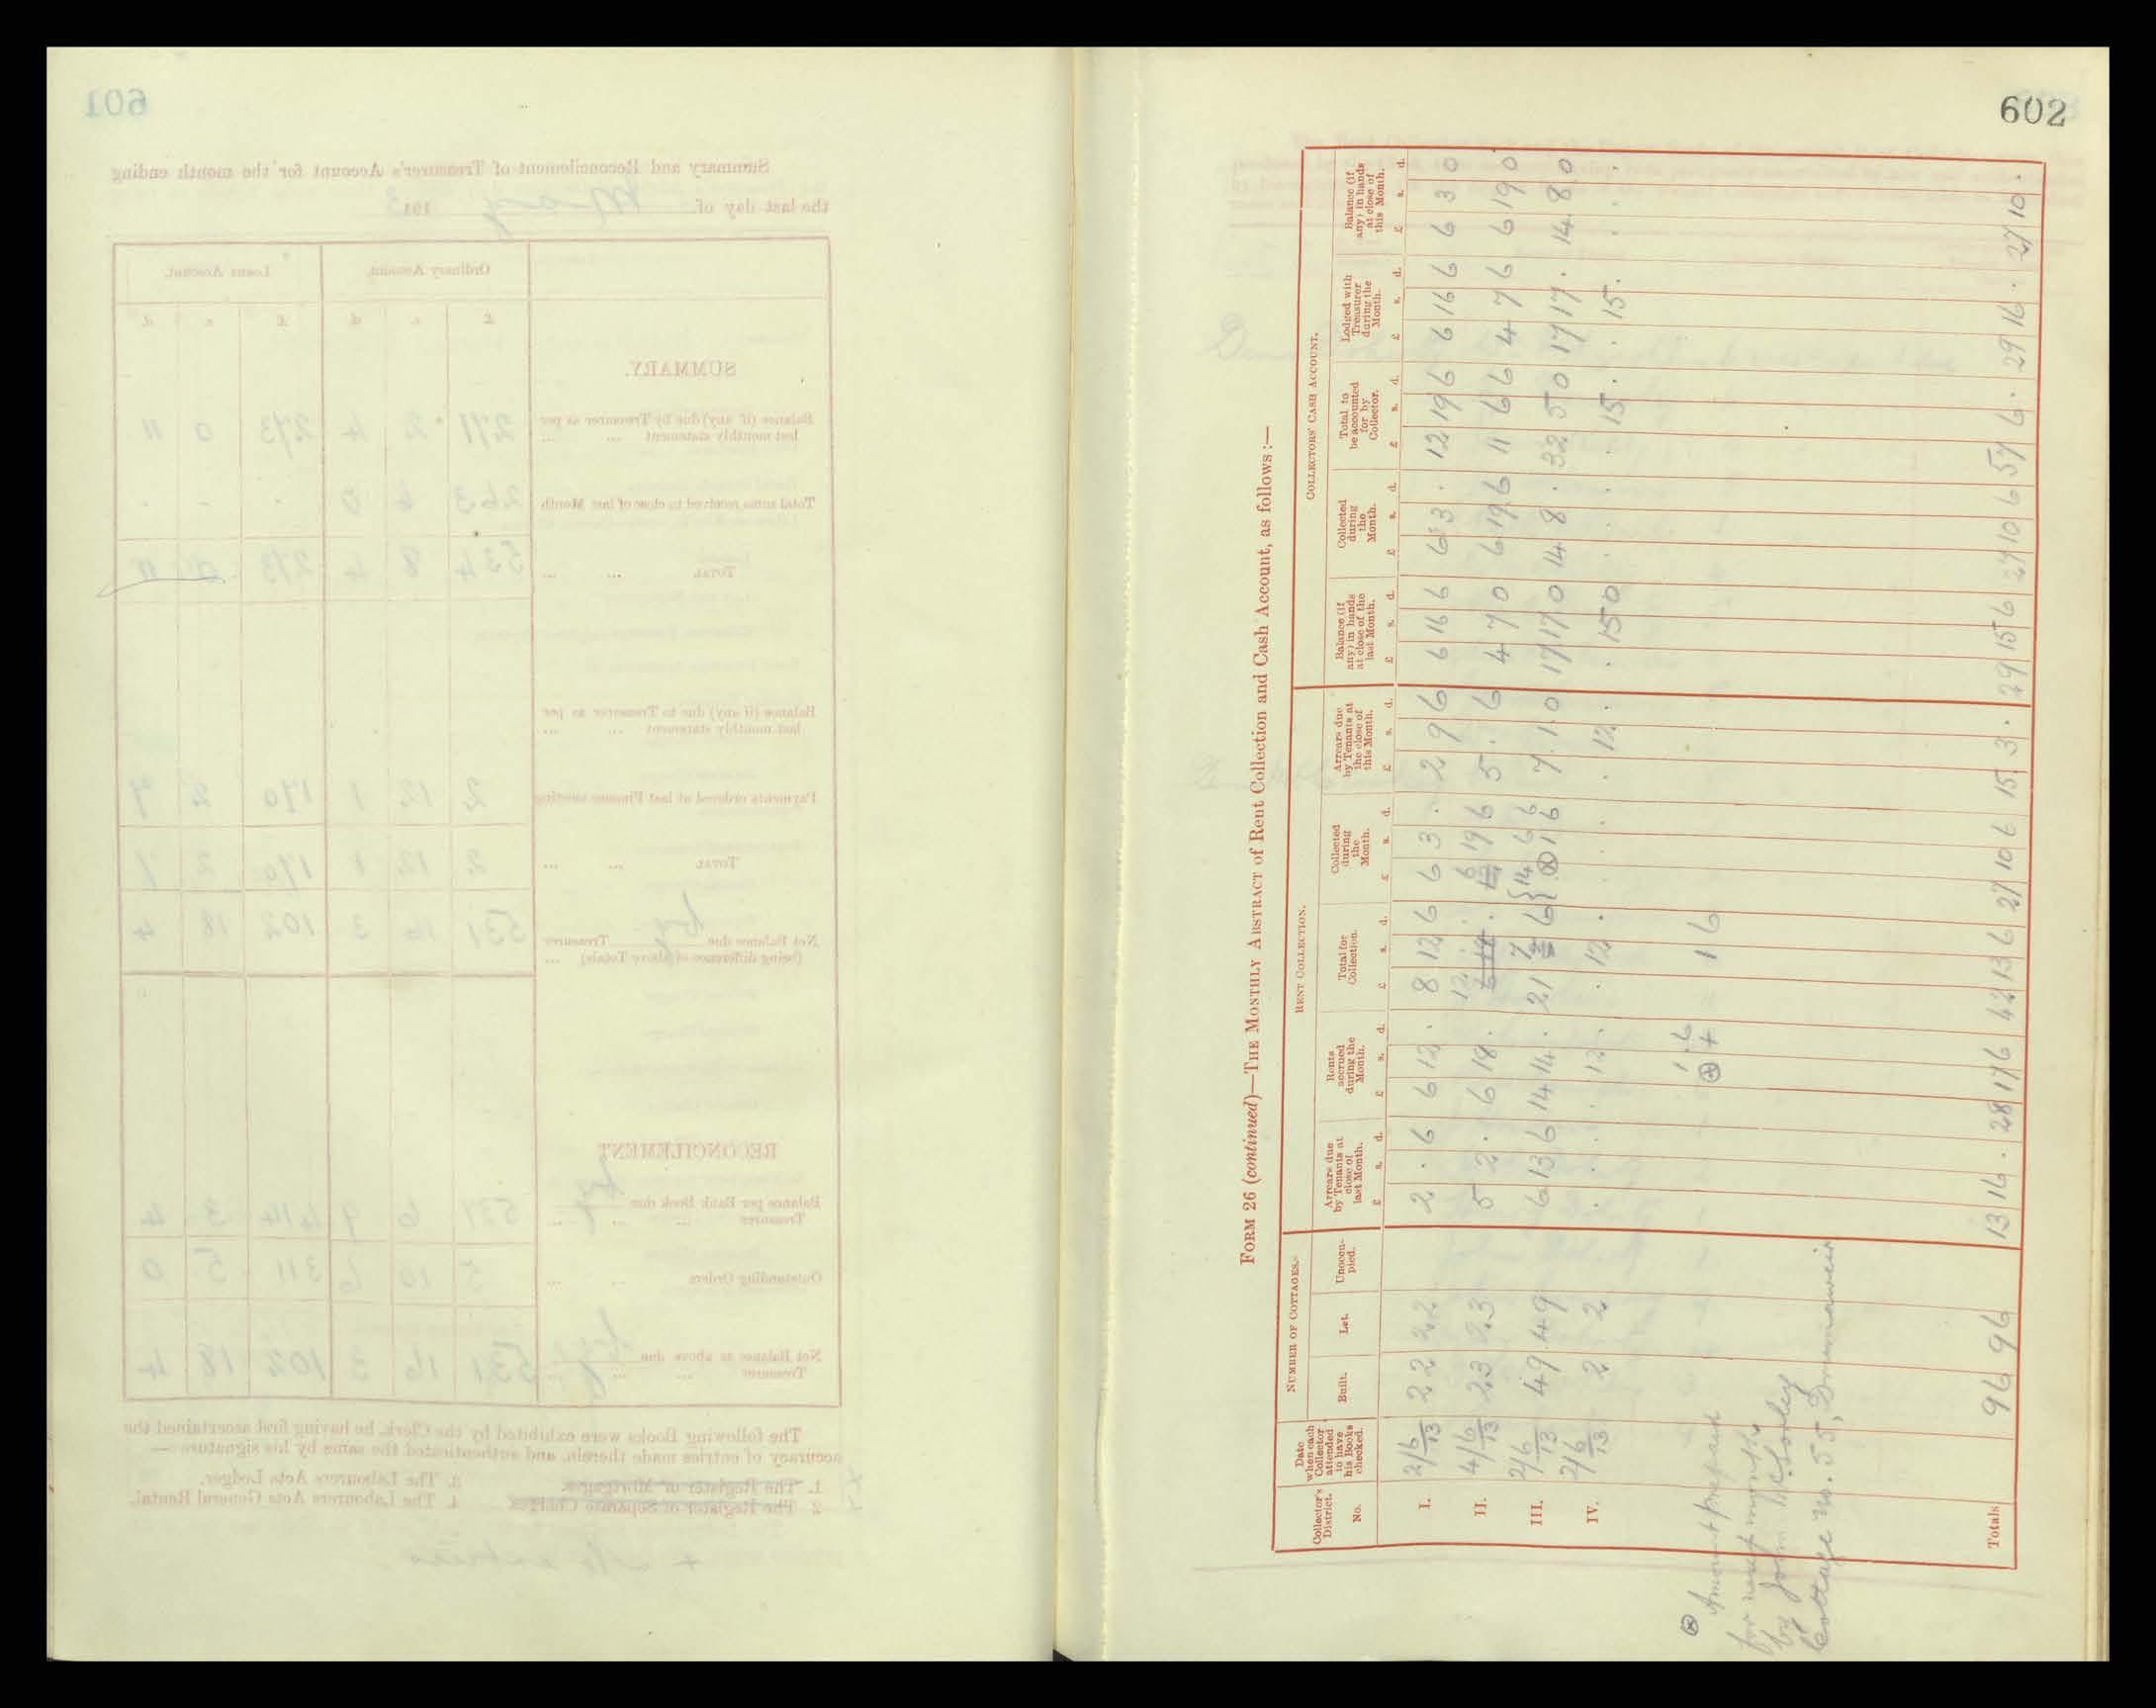 601
Summary and Reconcilement of Treasurer's Account for the month ending
the last day of May 1913
Ordinary Account. Loans Account.
£ s. d. £ s. d.
SUMMARY.
Balance (if any) due by Treasurer as per
last monthly statement ... ... 271 2 4 273 0 11
Total sums received to close of last Month 263 6 0 . - .
TOTAL ... ... 534 8 4 273 0 11
Balance (if any) due to Treasurer as per
last monthly statement ... ...
Payments ordered at last Finance meeting 2 12 1 170 2 7
TOTAL ... 2 12 1 170 2 7
Net Balance due by Treasurer
(being difference of above Totals) ... 531 16 3 102 18 4
RECONCILEMENT
Balance per Bank Book due by
Treasurer ... ... ... 537 6 9 414 3 4
Outstanding Orders ... ... 5 10 6 311 5 0
Net Balance as above due by
Treasurer ... ... 531 16 3 102 18 4
The following Books were exhibited by the Clerk, he having first ascertained the
accuracy of entries made therein, and authenticated the same by his signature:—
1. The Register of Mortgages. 3. The Labourers Acts Ledger.
2. The Register of Separate Charges. 4. The Labourers Acts General Rental.
+ No entries
602
FORM 26 (continued)—THE MONTHLY ABSTRACT of Rent Collection and Cash Account, as follows :—
Collector's District. No.
Date when each Collector attended to have his Books checked.
NUMBER OF COTTAGES.
Built. Let. Unoccupied.
RENT COLLECTION.
Arrears due by Tenants at close of last Month. £ s. d.
Rents accrued during the Month. £ s. d.
Total for Collection. £ s. d.
Collected during the Month. £ s. d.
Arrears due by Tenants at the close of this Month. £ s. d.
COLLECTORS' CASH ACCOUNT.
Balance (if any) in hands at close of the last Month. £ s. d.
Collected during the Month. £ s. d.
Total to be accounted for by Collector. £ s. d.
Lodged with Treasurer during the Month. £ s. d.
Balance (if any) in hands at close of this Month. £ s. d.
I. 2/6/13 22 22 2 . 6 6 12 . 8 12 6 6 3 . 2 9 6 6 16 6 6 3 . 12 19 6 6 16 6 6 3 0
II. 4/6/13 23 23 5 2 . 6 18 . 12 . . 6 19 6 5 . 6 4 7 0 6 19 6 11 6 6 4 7 6 6 19 0
III. 2/6/13 49 49 6 13 6 14 14 . 21 7 6 { 14 6 6 ⊗ 1 6 7 1 0 17 17 0 14 8 . 32 5 0 17 17 . 14 8 0
IV. 2/6/13 2 2 . . . . 12 . . 12 . . . . . 12 . . 15 0 . . . . 15 . . 15 . . . .
1 6
⊗ + = 1 6
⊗ Amount prepaid
for next month
by John McSorley
Cottage No. 55, Drummaweir
Totals 96 96 13 16 . 28 17 6 42 13 6 27 10 6 15 3 . 29 15 6 27 10 6 57 6 . 29 16 . 27 10 .